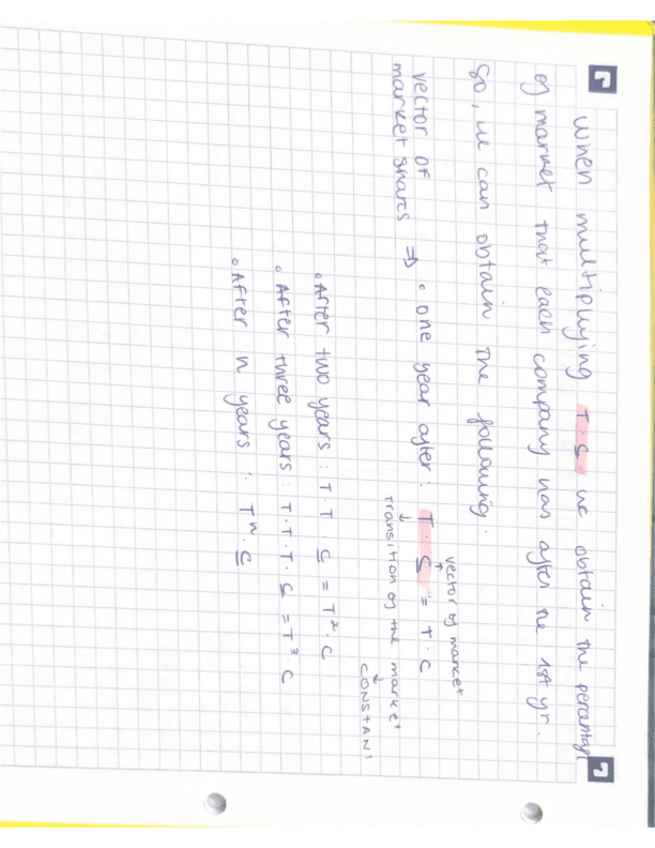 when multiplying T · c we obtain the percentage
of market that each company has after the 1st yr.
So, we can obtain the following:
vector of market
vector of
market shares ⇒ • one year after: T · c = T · c
transition of the market
CONSTANT
• After two years: T · T · c = T² · c
• After three years: T · T · T · c = T³ · c
• After n years: Tⁿ · c